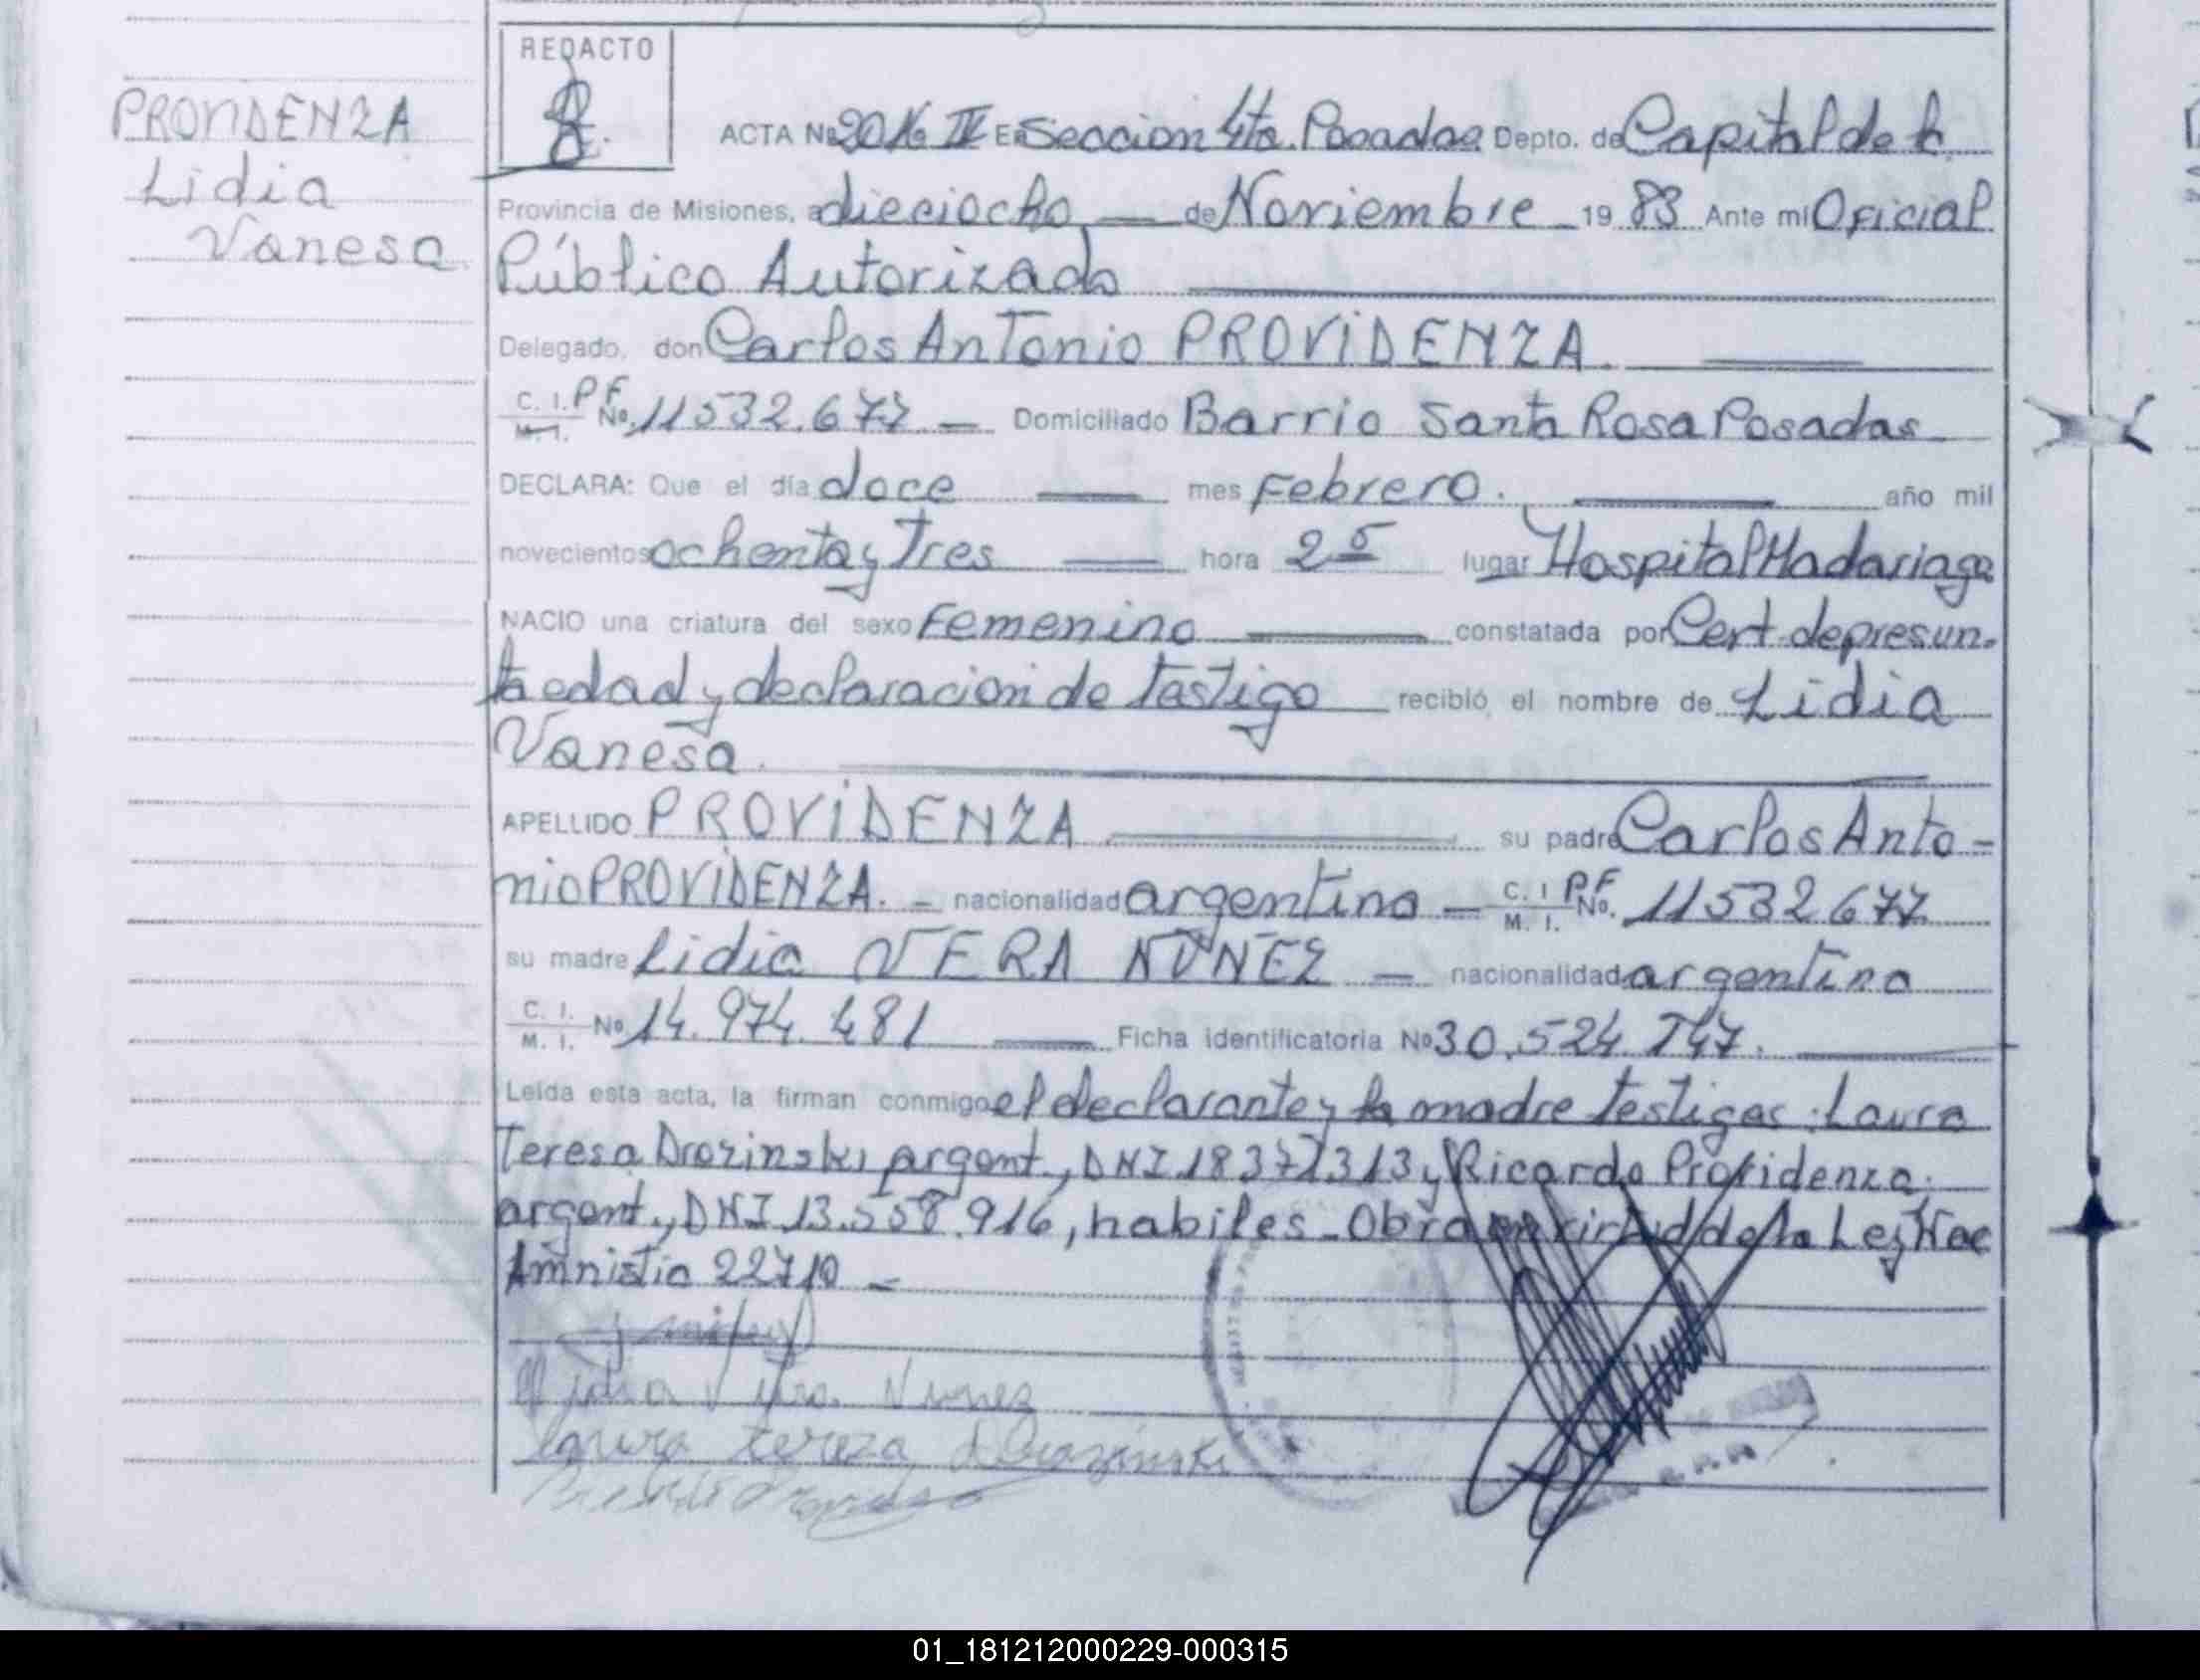 REDACTO
PROVIDENZA
Lidia
Vanesa
ACTA Nº En Seccion 4ta. Posadas Depto. de Capital de la
Provincia de Misiones, a dieciocho de Noviembre 1983 Ante mi Oficial
Público Autorizado
Delegado, don Carlos Antonio PROVIDENZA.
C. I. P F
M. I. No. 11532.677 Domiciliado Barrio Santa Rosa Posadas
DECLARA: Que el día doce mes Febrero. año mil
novecientos ochenta y Tres hora lugar Hospital Madariaga
NACIO una criatura del sexo Femenino constatada por Cert. de presun-
ta edad y declaracion de Testigo recibió el nombre de Lidia
Vanesa.
APELLIDO PROVIDENZA su padre Carlos Anto-
nio PROVIDENZA. - nacionalidad argentina - C. I. P F
M. I. No. 11532677
su madre Lidia VERA NUÑEZ - nacionalidad argentina
C. I.
M. I. No 14.974.481 Ficha identificatoria Nº 30.524.747.
Leída esta acta, la firman conmigo el declarante y la madre testigos: Laura
Teresa Drozinski argent., DNI 18371313 y Ricardo Providenza.
argent., DNI 13.558.916, habiles - Obra en virtud de la Ley de
Amnistia 22710 -
Vera Nunez
laura tereza Drozinski
01_181212000229-000315